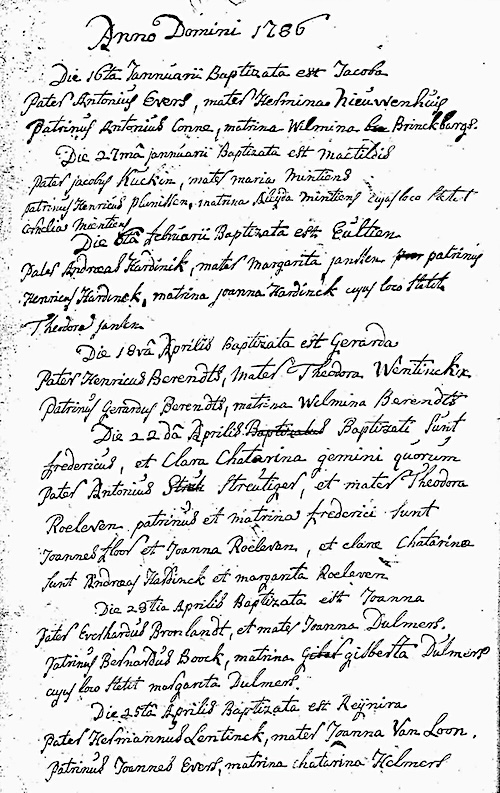 Anno Domini 1786
Die 16ta Jannuarii Baptizata est Jacoba
Pater Antonius Evers, mater Hermina Nieuwenhuis
Patrinus Antonius Conne, matrina Wilmina Brinckbergs.
Die 27ma jannuarii Baptizata est mactildis
Pater jacobus Kuckin, mater maria mintiens
patrinus Henricus, matrina mintiens cujus loco stetit
Cornelia mientiens
Die 6ta februarii Baptizata est
Pater Andreas Hardinik, mater margarita janssen patrinus
Henricus Hardinck, matrina joanna Hardinck cujus loco stetit
Theodora jansen
Die 18va Aprilis Baptizata est Gerarda
Pater Henricus Berendts, Mater Theodora Wentinck
Patrinus Gerardus Berendts, matrina Welmina Berendts
Die 22da Aprilis Baptizatus Baptizati sunt
fredericus, et Clara Chatarina gemini quorum
Pater Antonius Streutiger, et mater Theodora
Roeleven patrinus et matrina frederici sunt
Joannes floor et Joanna Roeleven, et clarae Chatarinae
sunt Andreas Hardinck et margarita Roeleven
Die 23tia Aprilis Baptizata est Joanna
Pater Everhardus Bronlandt, et mater Joanna Dulmers.
Patrinus Bernardus Boock, matrina gisberta Dulmers
cujus loco stetit margarita Dulmers.
Die 25ta Aprilis Baptizata est Reijnira
Pater Hermannus Lentinck, mater Joanna Van Loon.
Patrinus Joannes Evers, matrina chatarina Helmers